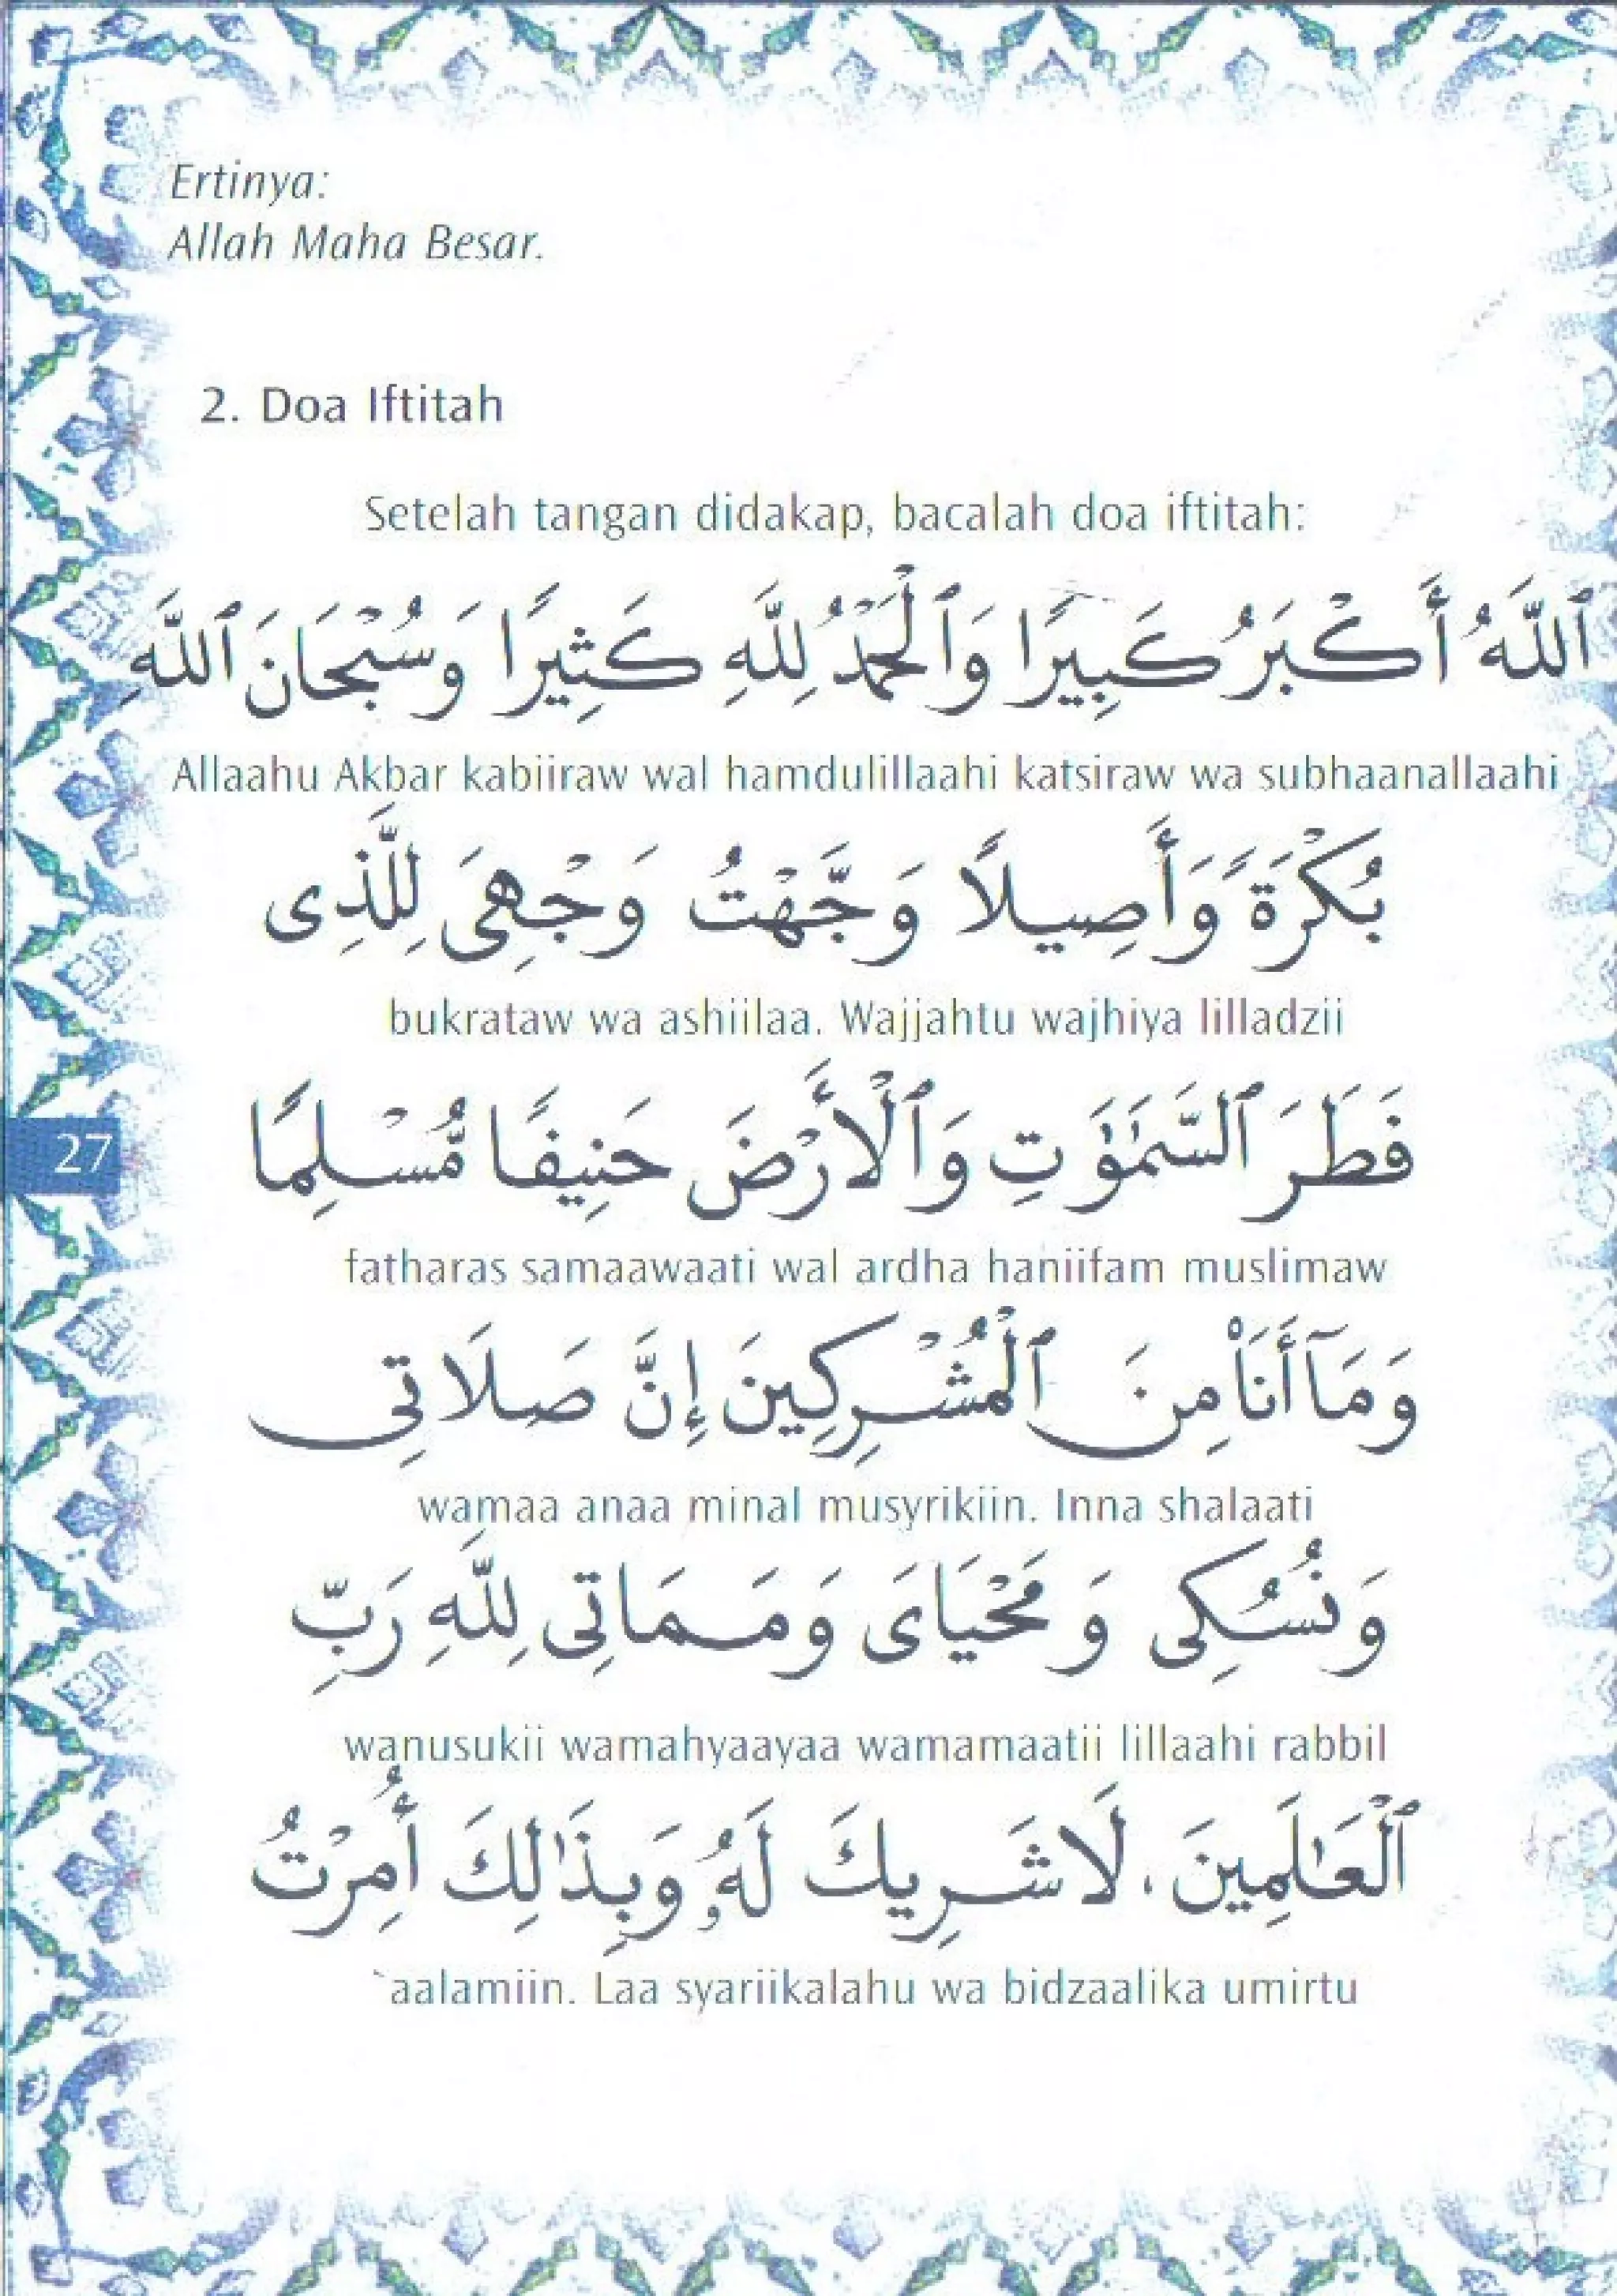 Ertinya:
Allah Maha Besar.
2. Doa Iftitah
Setelah tangan didakap, bacalah doa iftitah:
ٱللَّهُ أَكْبَرُ كَبِيرًا وَٱلْحَمْدُ لِلَّهِ كَثِيرًا وَسُبْحَانَ ٱللَّهِ
Allaahu Akbar kabiiraw wal hamdulillaahi katsiraw wa subhaanallaahi
بُكْرَةً وَأَصِيلاً وَجَّهْتُ وَجْهِىَ لِلَّذِى
bukrataw wa ashiilaa. Wajjahtu wajhiya lilladzii
فَطَرَ ٱلسَّمَٰوَٰتِ وَٱلْأَرْضَ حَنِيفًا مُّسْلِمًا
27
fatharas samaawaati wal ardha haniifam muslimaw
وَمَآ أَنَا۠ مِنَ ٱلْمُشْرِكِينَ إِنَّ صَلَاتِى
wamaa anaa minal musyrikiin. Inna shalaati
وَنُسُكِى وَمَحْيَاىَ وَمَمَاتِى لِلَّهِ رَبِّ
wanusukii wamahyaayaa wamamaatii lillaahi rabbil
ٱلْعَٰلَمِينَ، لَا شَرِيكَ لَهُۥ وَبِذَٰلِكَ أُمِرْتُ
`aalamiin. Laa syariikalahu wa bidzaalika umirtu